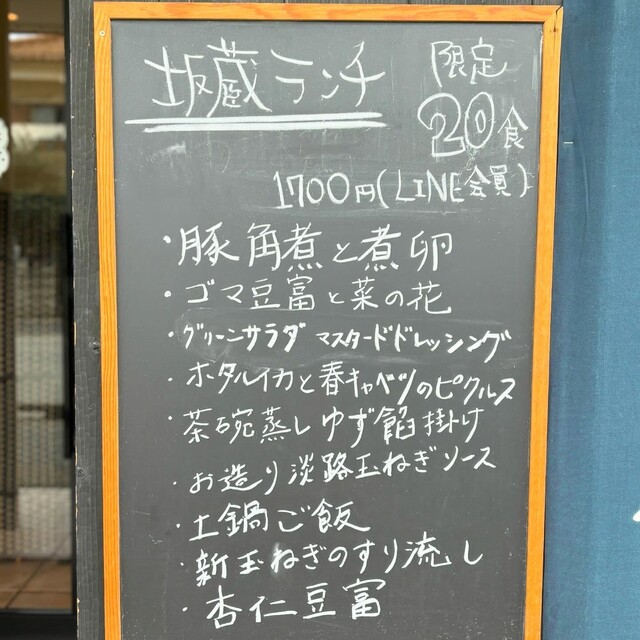 坂蔵ランチ
限定
20食
1700円(LINE会員)
・豚角煮と煮卵
・ゴマ豆富と菜の花
・グリーンサラダ マスタードドレッシング
・ホタルイカと春キャベツのピクルス
・茶碗蒸し ゆず餡掛け
・お造り 淡路玉ねぎソース
・土鍋ご飯
・新玉ねぎのすり流し
・杏仁豆富